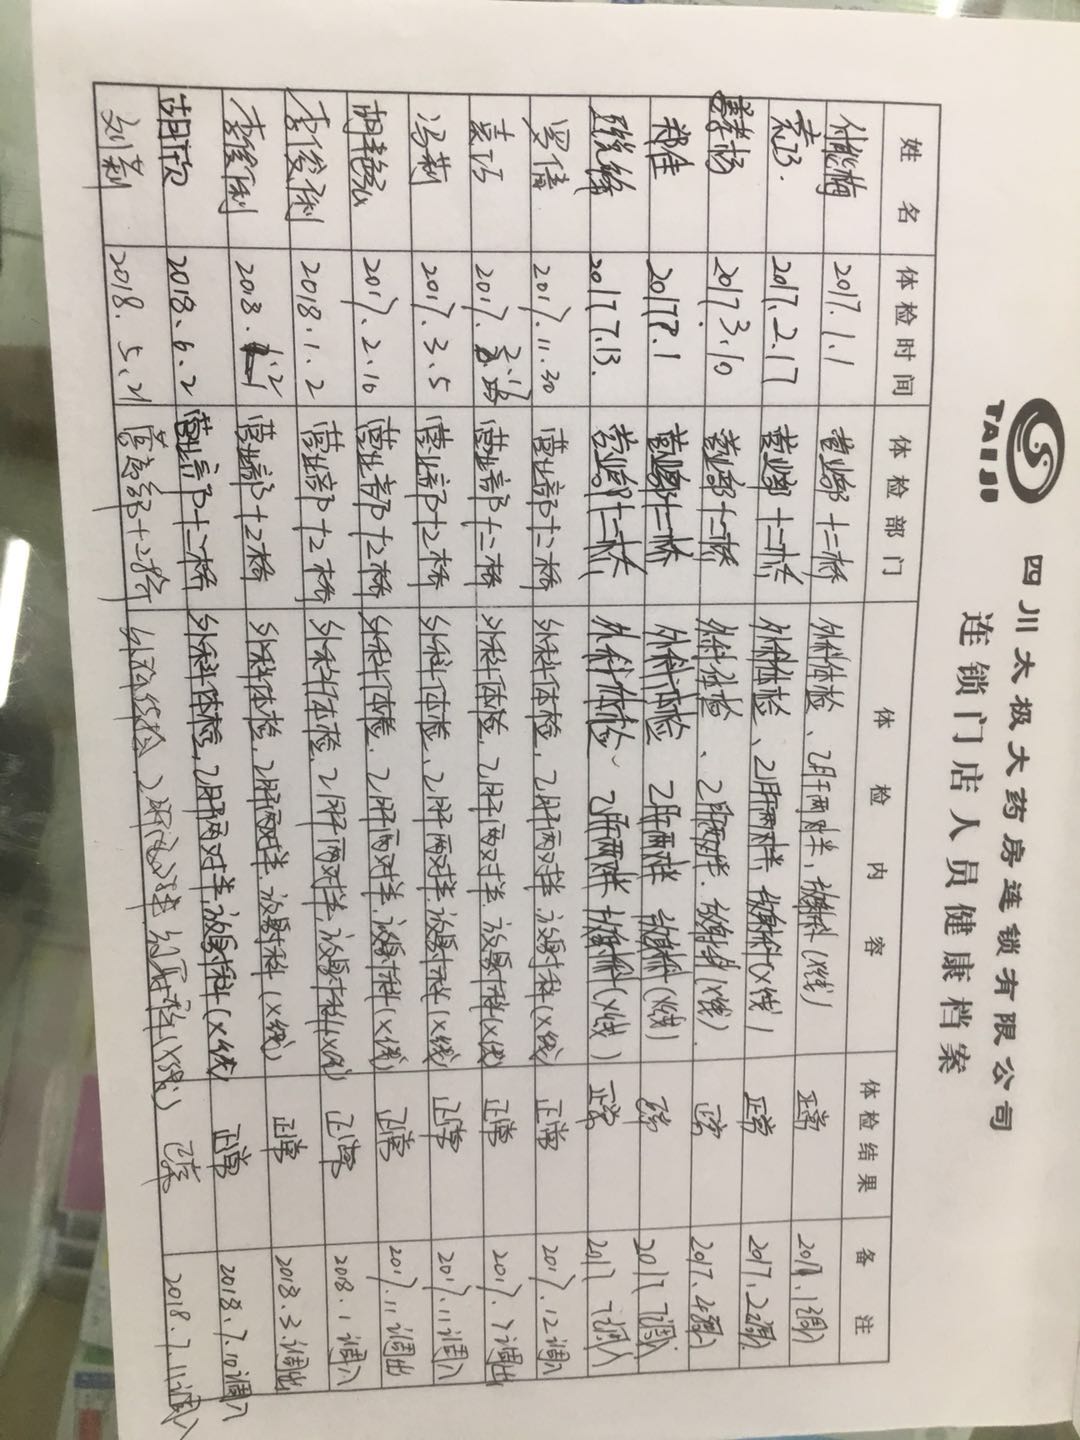 TAIJI
四川太极大药房连锁有限公司
连锁门店人员健康档案
姓名 体检时间 体检部门 体检内容 体检结果 备注
付能梅 2017.1.1 营业部十二桥 外科体检、乙肝两对半,放射科(X线) 正常 2017.1调入
2017.2.17 营业部十二桥 外科体检、乙肝两对半 放射科(X线) 正常 2017.2调入
2017.3.10 营业部十二桥 外科体检、乙肝两对半.放射科(X线) 正常 2017.4调入
郑佳 营业部十二桥 外科体检 乙肝两对半 放射科(X线) 正常 2017.7调入
2017.7.13. 营业部十二桥 外科体检、乙肝两对半 放射科(X线) 正常 2017.7调入
罗倩 2017.11.30 营业部十二桥 外科体检,乙肝两对半.放射科(X线) 正常 2017.12调入
袁巧 营业部十二桥 外科体检,乙肝两对半.放射科(X线) 正常 2017.7调出
冯莉 2017.3.5 营业部十2桥 外科体检、乙肝两对半.放射科(X线) 正常 2017.11调入
胡艳弘 2017.2.10 营业部十2桥 外科体检,乙肝两对半.放射科(X线) 正常 2017.11调出
李俊俐 2018.1.2 营业部十2桥 外科体检,乙肝两对半,放射科(X线) 正常 2018.1调入
李俊俐 2018.1.2 营业部十2桥 外科体检,乙肝两对半.放射科(X线) 正常 2018.3.调出
胡欣 2018.6.2 营业部十二桥 外科体检,乙肝两对半,放射科(X线) 正常 2018.7.10调入
刘莉 2018.5.21 营业部十2桥 外科体检,乙肝两对半 放射科(X线) 正常 2018.7.11调入